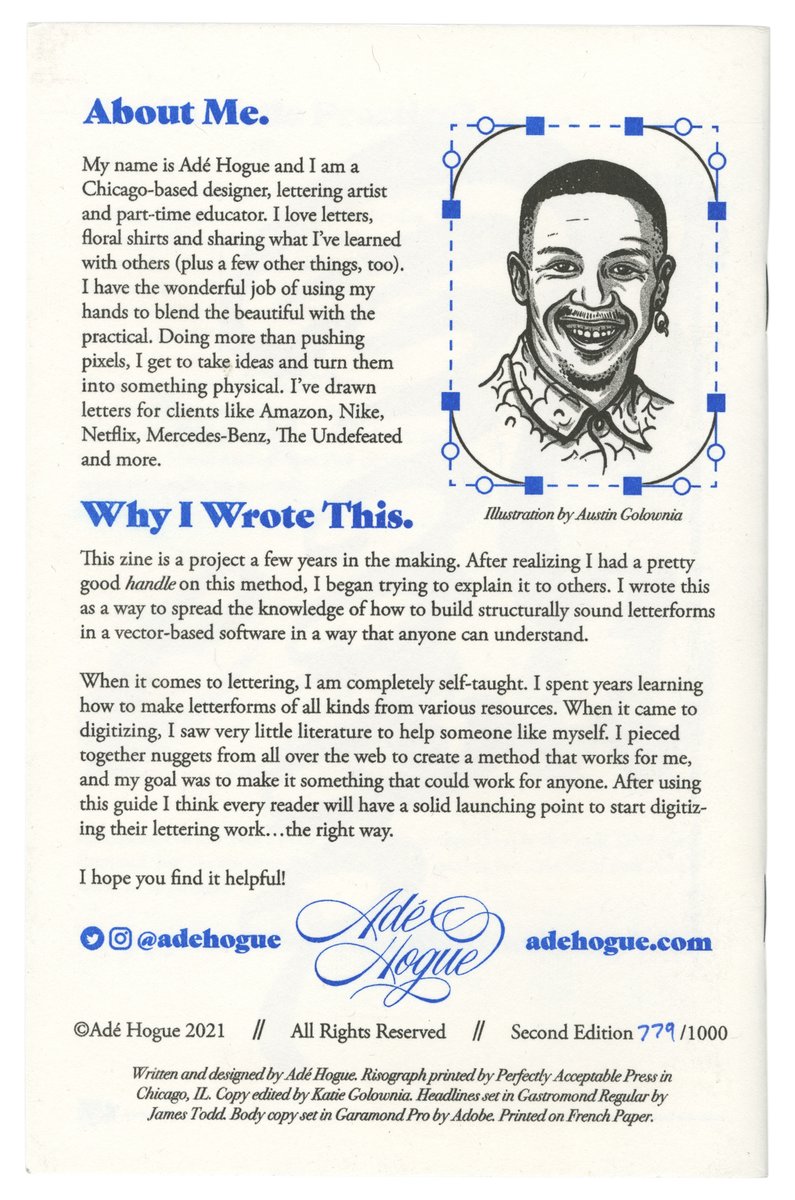 About Me.
My name is Adé Hogue and I am a
Chicago-based designer, lettering artist
and part-time educator. I love letters,
floral shirts and sharing what I've learned
with others (plus a few other things, too).
I have the wonderful job of using my
hands to blend the beautiful with the
practical. Doing more than pushing
pixels, I get to take ideas and turn them
into something physical. I've drawn
letters for clients like Amazon, Nike,
Netflix, Mercedes-Benz, The Undefeated
and more.
Illustration by Austin Golownia
Why I Wrote This.
This zine is a project a few years in the making. After realizing I had a pretty
good handle on this method, I began trying to explain it to others. I wrote this
as a way to spread the knowledge of how to build structurally sound letterforms
in a vector-based software in a way that anyone can understand.
When it comes to lettering, I am completely self-taught. I spent years learning
how to make letterforms of all kinds from various resources. When it came to
digitizing, I saw very little literature to help someone like myself. I pieced
together nuggets from all over the web to create a method that works for me,
and my goal was to make it something that could work for anyone. After using
this guide I think every reader will have a solid launching point to start digitiz-
ing their lettering work...the right way.
I hope you find it helpful!
@adehogue
Adé
Hogue
adehogue.com
©Adé Hogue 2021 // All Rights Reserved // Second Edition 779/1000
Written and designed by Adé Hogue. Risograph printed by Perfectly Acceptable Press in
Chicago, IL. Copy edited by Katie Golownia. Headlines set in Gastromond Regular by
James Todd. Body copy set in Garamond Pro by Adobe. Printed on French Paper.